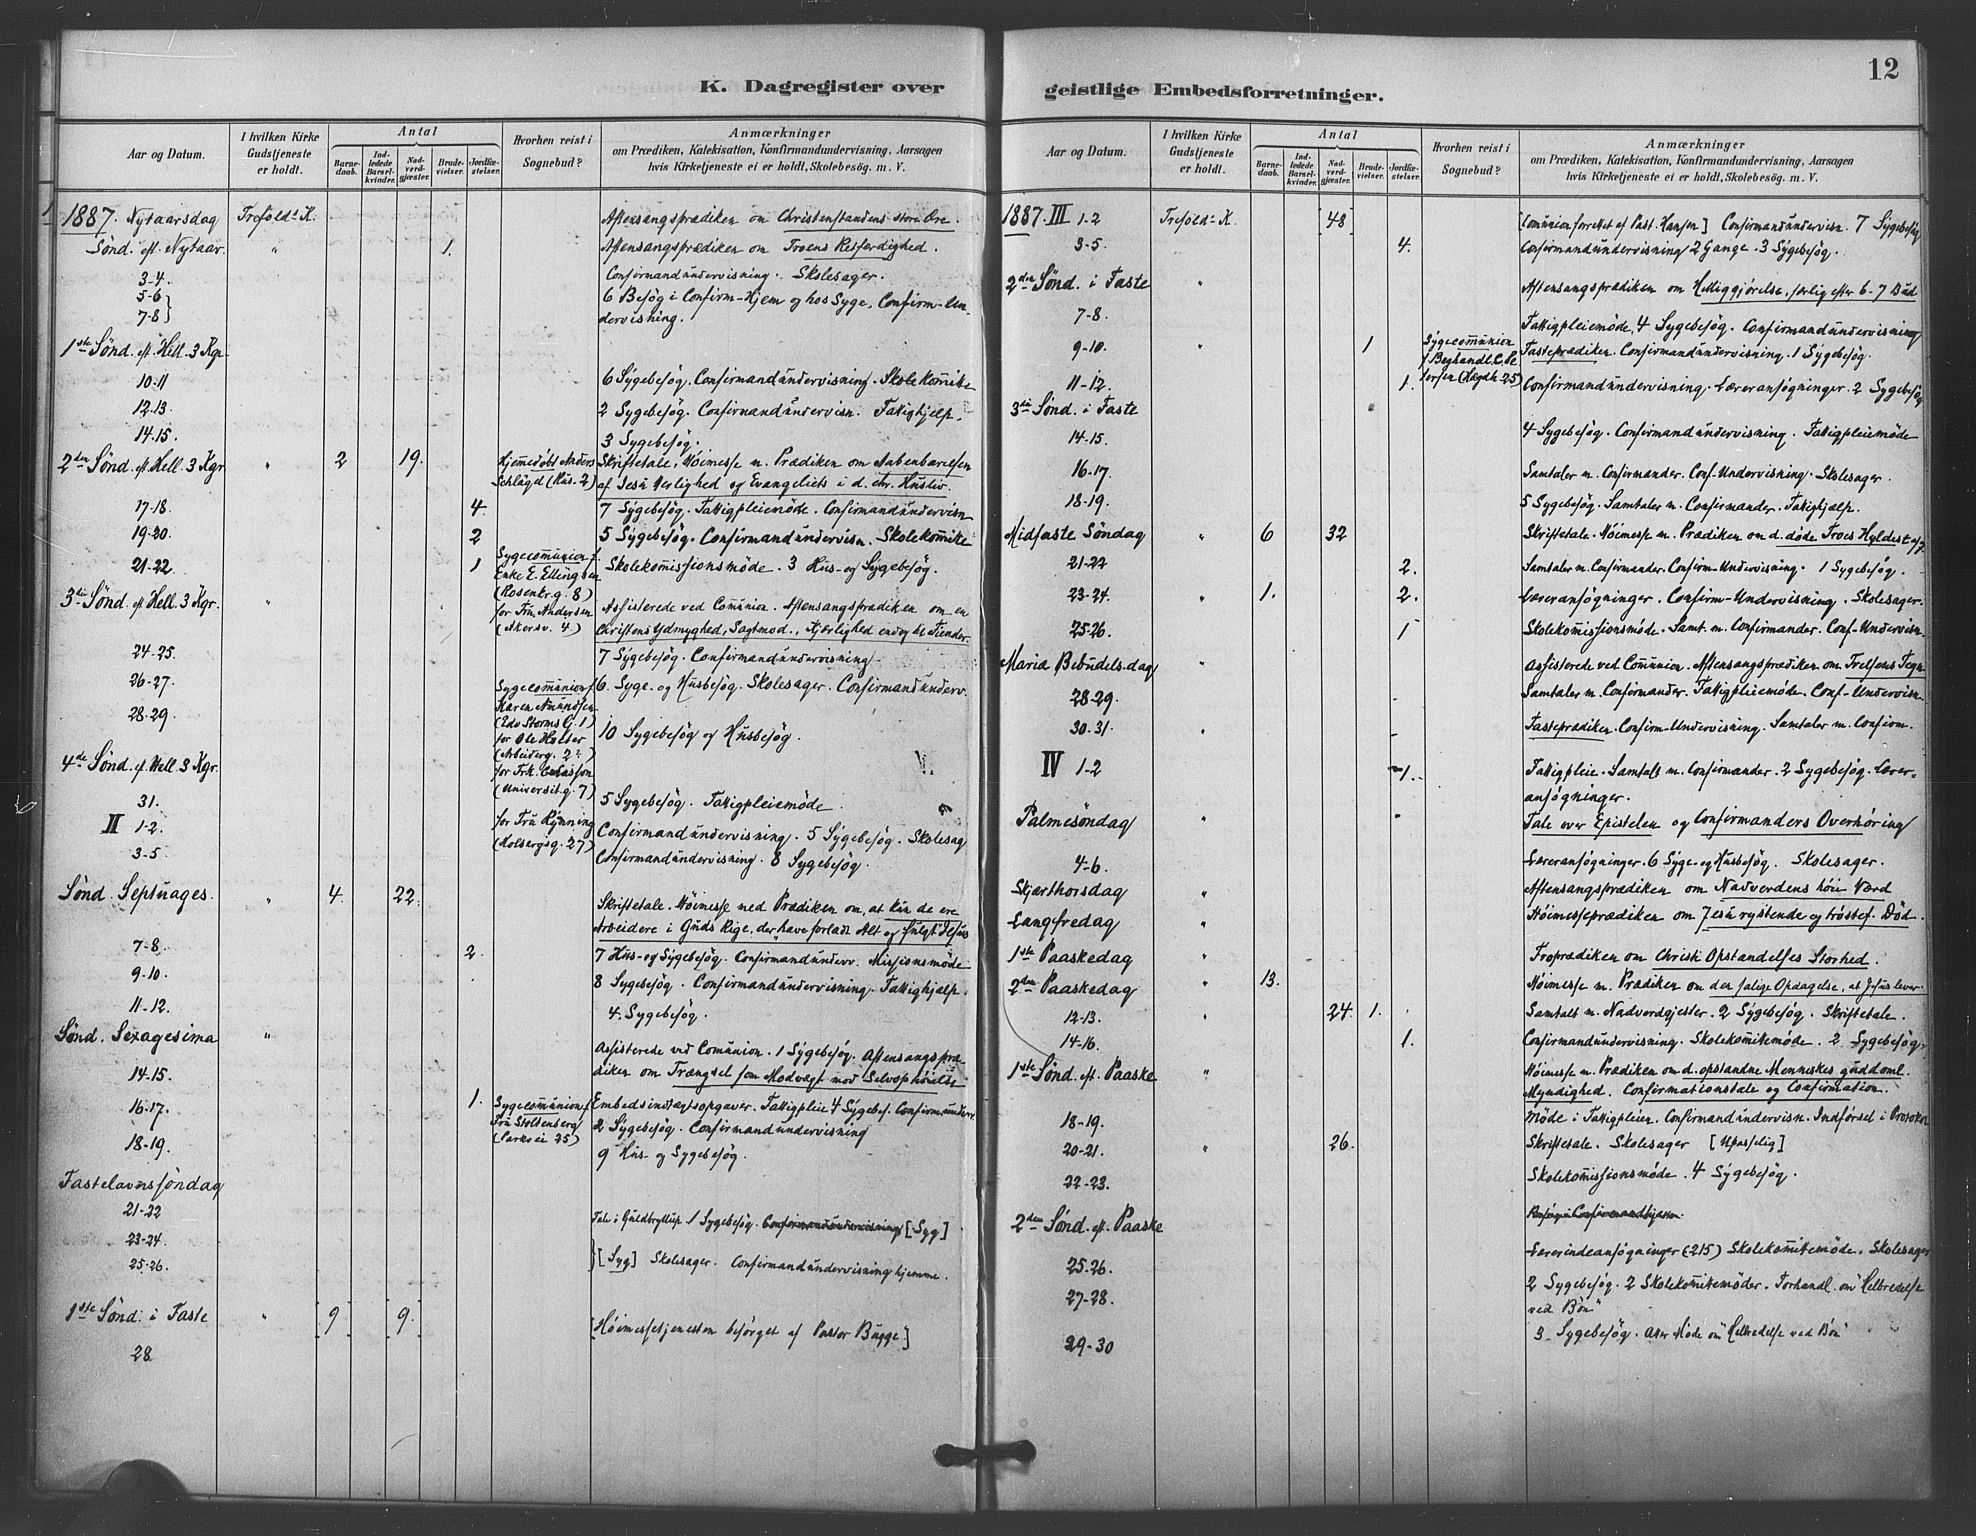 12
K. Dagregister over
Antal
Aar og Datum.
I hvilken Kirke
Gudstjeneste
er holdt.
Barne-
daab.
Ind-
ledede
Barsel-
kvinder.
Nad-
verd-
gjæster.
Brude-
vielser.
Jordfæ-
stelser.
Hvorhen reist i
Sognebud?
Anmærkninger
om Prædiken, Katekisation, Konfirmandundervisning, Aarsagen
hvis Kirketjeneste ei er holdt, Skolebesög. m. V.
1887. Nytaarsdag Trefolds K. Aftensangsprædiken om Christenstandens store Ære.
Sønd. eft. Nytaar. " 1. Aftensangsprædiken om Troens Retfærdighed.
3-4. Confirmandundervisning. Skolesager.
5-6 6 Besøg i Confirm-Hjem og hos Syge, Confirm-Un-
7-8 dervisning.
1ste Sønd. eft. Hell. 3 Kgr.
10-11 6 Sygebesøg. Confirmandundervisning. Skolekomite
12-13. 2 Sygebesøg. Confirmandundervisn. Fattighjelp.
14-15. 3 Sygebesøg.
2den Sønd. eft. Hell. 3 Kgr. " 2 19. Hjemmedøbt Anders Skriftetale, Høimesse m. Prædiken om Aabenbarelsen
af Jesu Herlighed og Evangeliets i d. chr. Husliv.
17-18. 4. 7 Sygebesøg. Fattigpleiemøde. Confirmandundervisn
19-20. 2 5 Sygebesøg. Confirmandundervisn. Skolekomite
21-22. 1 Sygecommunion f. Enke E. Ellingsen (Rosenkr.g. 8) Skolekommissionsmøde. 3 Hus- og Sygebesøg.
3die Sønd. eft. Hell. 3 Kgr. " for Fru Andersen (Akersv. 4) Assisterede ved Communion. Aftensangsprædiken om en
Christens Ydmyghed, Sagtmod., Kjærlighed endog til Fiender.
24-25. 7 Sygebesøg. Confirmandundervisning
26-27. Sygecommunion f. Karen Amundsen (Edv Storms G. 1) 6. Syge- og Husbesøg. Skolesager. Confirmandunderv.
28-29. for Ole Holter (Arbeiderg. 2) 10 Sygebesøg og Husbesøg.
4de Sønd. ef. Hell. 3 Kgr. for Frk. (Universit.g. 7)
31. 5 Sygebesøg. Fattigpleiemøde.
II 1-2. for Fru Rynning (Holbergsg. 27) Confirmandundervisning. 5 Sygebesøg. Skolesag
3-5. Confirmandundervisning. 8 Sygebesøg.
Sønd. Septuages. " 4. 22. Skriftetale. Høimesse med Prædiken om, at kun de ere
Arbeidere i Guds Rige, der "have forladt Alt og fulgt" Jesus
7-8. 2. 7 Hus- og Sygebesøg. Confirmandunderv. Missionsmøde
9-10. 8 Sygebesøg. Confirmandundervisning. Fattighjælp.
11-12. 4. Sygebesøg.
Sønd. Sexagesima " Assisterede ved Communion. 1 Sygebesøg. Aftensangspræ-
14-15. diken om Trængsel som Modvægt mod Selvophøielse
16-17. 1. Sygecommunion f. Fru Stoltenberg (Parkvei 25) Embedsindtægtsopgaver. Fattigpleie 4 Sygebes. Confirm.underv.
18-19. 2 Sygebesøg. Confirmandundervisning
9 Hus- og Sygebesøg.
Fastelavnssøndag
21-22 Tale i Guldbryllup. 1 Sygebesøg. Confirmandundervisning [Syg]
23-24.
25-26. [Syg] Skolesager. Confirmandundervisning hjemme.
1ste Sønd. i Faste " 9 9. [Høimessetjenesten besørget af Pastor Bugge]
28.
geistlige Embedsforretninger.
Antal
Aar og Datum.
I hvilken Kirke
Gudstjeneste
er holdt.
Barne-
daab.
Ind-
ledede
Barsel-
kvinder.
Nad-
verd-
gjæster.
Brude-
vielser.
Jordfæ-
stelser.
Hvorhen reist i
Sognebud?
Anmærkninger
om Prædiken, Katekisation, Konfirmandundervisning, Aarsagen
hvis Kirketjeneste ei er holdt, Skolebesög. m. V.
1887. III 1-2 Trefolds K. [48] [Communion forrettet af Past. Hansen] Confirmandundervisn. 7 Sygebesøg
3-5. 4. Confirmandundervisning 2 Gange. 3 Sygebesøg.
2den Sønd. i Faste " Aftensangsprædiken om Helliggjørelse, særlig efter 6-7 Bud
7-8. Fattigpleiemøde, 4 Sygebesøg. Confirmandundervisning
9-10. " 1 Sygecommunion Fasteprædiken. Confirmandundervisning. 1 Sygebesøg.
11-12. 1. Confirmandundervisning. Læreransøgninger. 2 Sygebesøg
3die Sønd. i Faste
14-15. 4 Sygebesøg. Confirmandundervisning. Fattigpleiemøde
16-17. Samtaler m. Confirmander. Conf-Undervisning. Skolesager.
18-19. 5 Sygebesøg. Samtaler m. Confirmander. Fattighjelp.
Midfaste Søndag " 6 32 Skriftetale. Høimesse m. Prædiken om d. døde Troes
21-22 2. Samtaler m. Confirmander. Confirm-Undervisning. 1 Sygebesøg.
23-24. " 1. 2. Læreransøgninger. Confirm-Undervisning. Skolesager.
25-26. 1 Skolekommissionsmøde. Samt. m. Confirmander. Conf-Undervisn.
Maria Bebudels.dag " Assisterede ved Communion. Aftensangsprædiken om Frelsens Tegn
28-29. Samtaler m. Confirmander. Fattigpleiemøde. Conf-Undervisn.
30-31. " Fasteprædiken. Confirm-Undervisning. Samtaler m. Confirm.
IV 1-2 1. Fattigpleie. Samtalt m. Confirmander. 2 Sygebesøg. Lærer-
ansøgninger.
Palmesøndag " Tale over Epistelen og Confirmanders Overhøring
4-6. Læreransøgninger. 6 Syge- og Husbesøg. Skolesager.
Skjærthorsdag " Aftensangsprædiken om Nadverdens høie Værd
Langfredag " Høimesseprædiken om Jesu rystende og trøstef. Død.
1ste Paaskedag " Froprædiken om Christi Opstandelses Storhed.
2den Paaskedag " 13. Høimesse m. Prædiken om den salige Opdagelse, at Jesus lever.
12-13. " 24. 1. Samtalt m. Nadverdgjester. 2 Sygebesøg. Skriftetale.
14-16. 1. Confirmandundervisning. Skolekomitemøde. 2 Sygebesøg.
1ste Sønd. eft. Paaske " Høimesse m. Prædiken om d. opstandne Menneskes guddoml.
Myndighed. Confirmationstale og Confirmation.
18-19. Møde i Fattigpleien. Confirmandundervisn. Indførsel i
20-21. " 26. Skriftetale. Skolesager [Upasselig]
22-23. Skolekommissionsmøde. 4 Sygebesøg.
2den Sønd. eft. Paaske
25-26. Lærerindeansøgninger (215) Skolekomitemøde. Skolesager
27-28. 2 Sygebesøg. 2 Skolekomitemøder. Forhandl. om "Helbredelse
ved Bøn"
29-30 3 Sygebesøg. Møde om "Helbredelse ved Bøn"